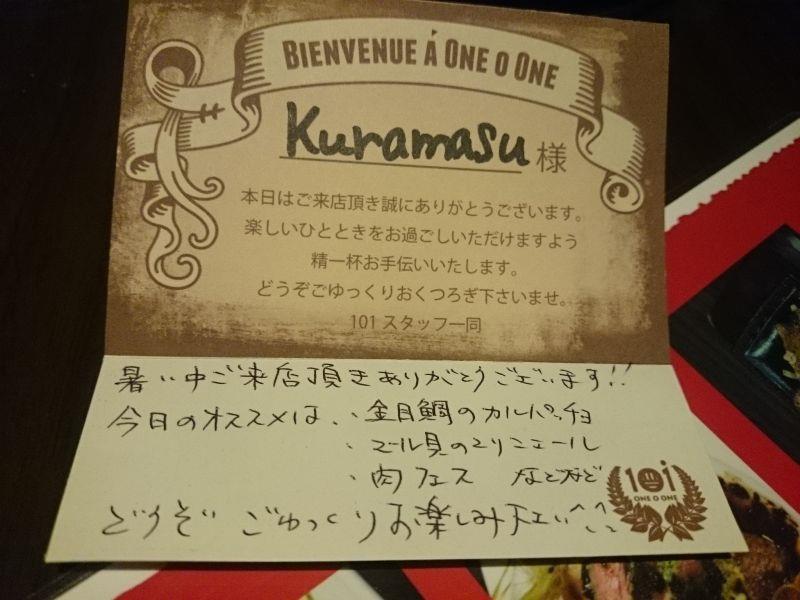 BIENVENUE Á ONE O ONE
Kuramasu 様
本日はご来店頂き誠にありがとうございます。
楽しいひとときをお過ごしいただけますよう
精一杯お手伝いいたします。
どうぞごゆっくりおくつろぎ下さいませ。
101 スタッフ一同
暑い中ご来店頂きありがとうございます!!
今日のオススメは、・金目鯛のカルパッチョ
・ムール貝のマリニエール
・肉フェス などなど
どうぞ ごゆっくりお楽しみ下さい^^
101
ONE O ONE